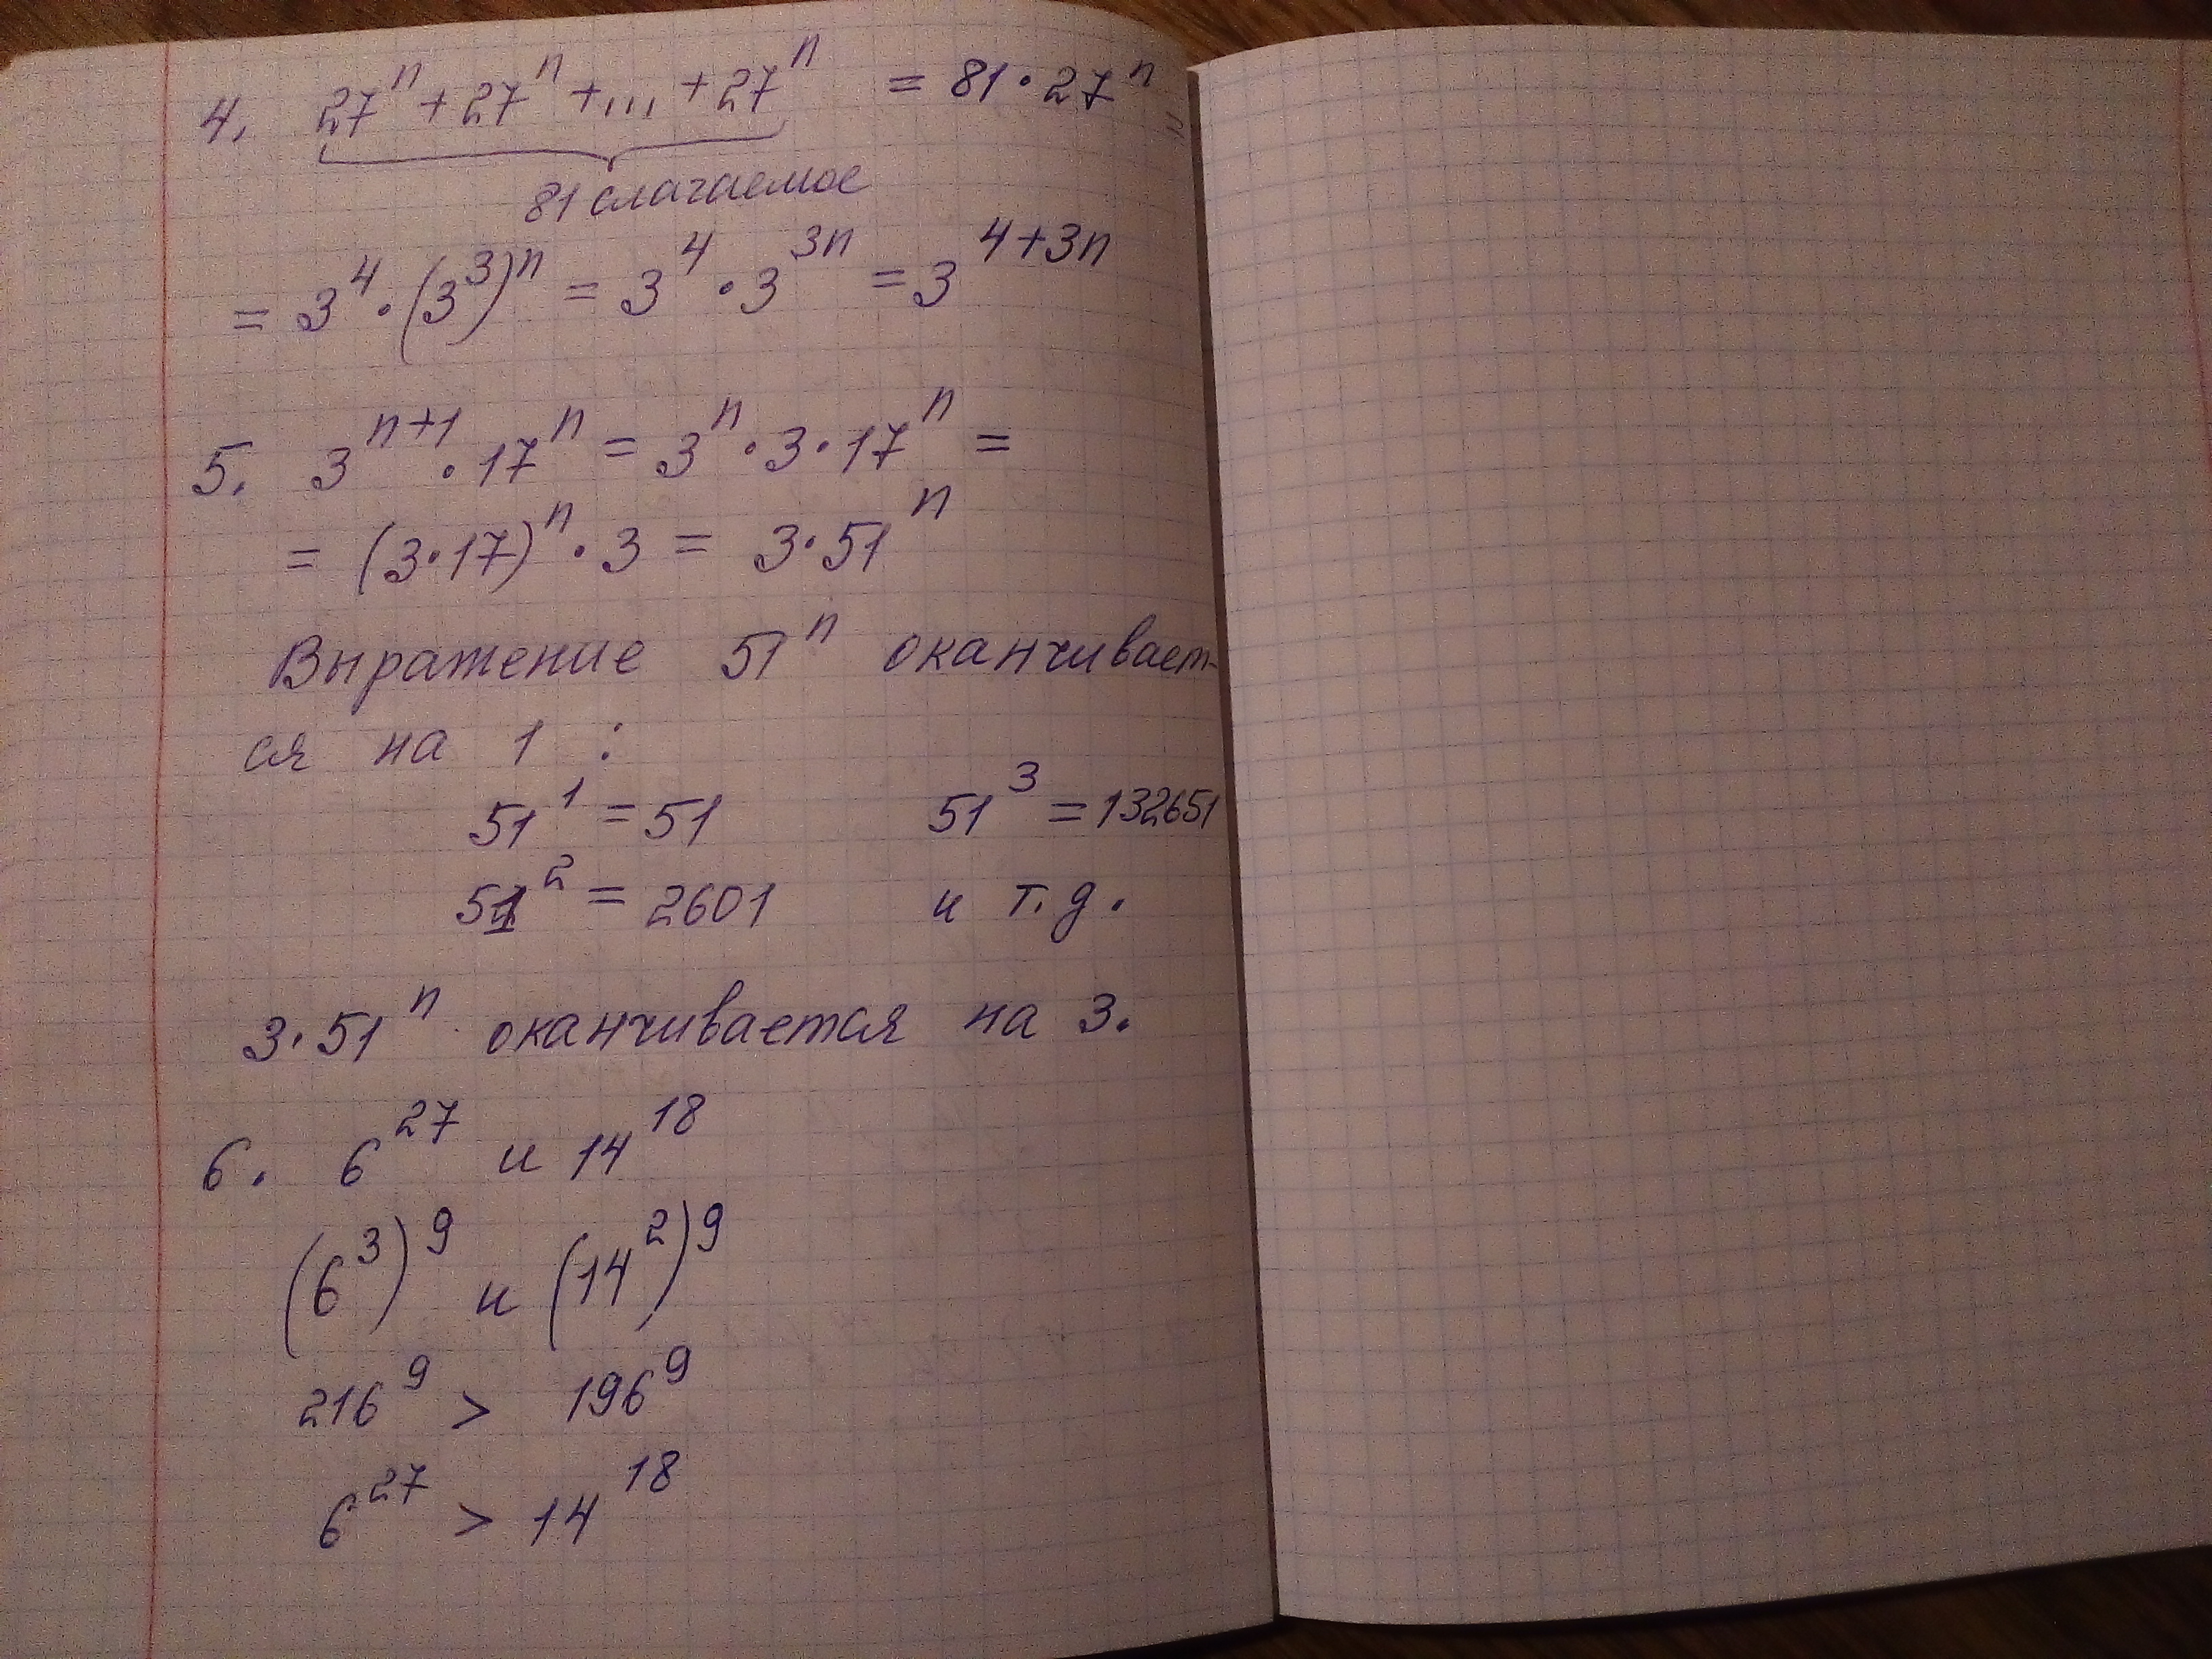 4. 27ⁿ + 27ⁿ + ... + 27ⁿ = 81 · 27ⁿ
81 слагаемое
= 3⁴ · (3³)ⁿ = 3⁴ · 3³ⁿ = 3⁴⁺³ⁿ
5. 3ⁿ⁺¹ · 17ⁿ = 3ⁿ · 3 · 17ⁿ =
= (3 · 17)ⁿ · 3 = 3 · 51ⁿ
Выражение 51ⁿ оканчивает-
ся на 1 :
51¹ = 51 51³ = 132651
51² = 2601 и т. д.
3 · 51ⁿ оканчивается на 3.
6. 6²⁷ и 14¹⁸
(6³)⁹ и (14²)⁹
216⁹ > 196⁹
6²⁷ > 14¹⁸